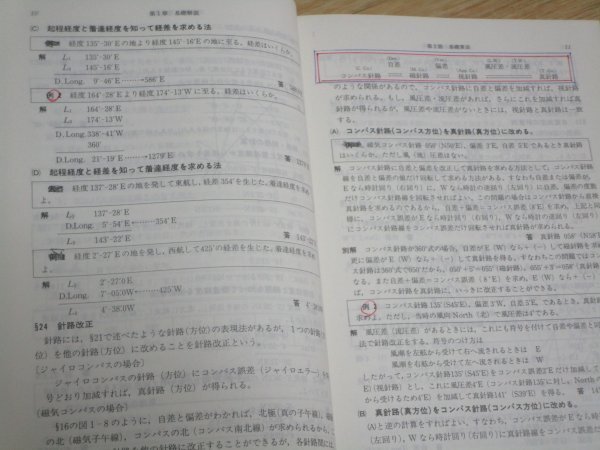 第1章 基礎解説
(C) 起程経度と着達経度を知って経差を求める法
経度135°-30′Eの地より経度145°-16′Eの地に至る。経差はいくらか。
解 L₁ 135°-30′E
L₂ 145°-16′E
D.Long. 9°-46′E ……→586′E 答
例 経度164°-28′Eより経度174°-13′Wに至る。経差はいくらか。
解 L₁ 164°-28′E
L₂ 174°-13′W
D.Long. 338°-41′W
360°
D.Long. 21°-19′E ……→1279′E 答
(D) 起程経度と経差を知って着達経度を求める法
経度137°-28′Eの地を発して東航し、経差354′を生じた。着達経度を求め
よ。
解 L₁ 137°-28′E
D.Long. 5°-54′E←……354′E
L₂ 143°-22′E 答
経度2°-27′Eの地を発し、西航して425′の経差を生じた。着達経度を求
よ。
解 L₁ 2°-27′.0E
D.Long. 7°-05′.0W←……425′W
L₂ 4°-38′.0W 答
§24 針路改正
針路には、§21で述べたような針路(方位)の表現法があるが、1つの針路(
位)を他の針路(方位)に改めることを針路改正という。
[ジャイロコンパスの場合]
ジャイロコンパスの針路(方位)にコンパス誤差(ジャイロエラー)を
号どおり加減すれば、真針路(方位)が得られる。
[磁気コンパスの場合]
§16の図1-8のように、自差と偏差がわかれば、北極(真の子午線)
の北(磁気子午線)、コンパスの北(コンパス南北線)が求められるから、
を他の針路に改正することができるが、各針路間には
第1章 基礎解説 11
(Dev.) 自差 偏差 風圧差・流圧差
コンパス針路 磁針路 視針路 真針路
のような関係があるので、コンパス針路に自差と偏差を加減すれば、視針路
が求められる。もし、風圧差・流圧差があれば、さらにこれを加減すれば真
針路が得られるが、風圧差や流圧差がないときには、視針路と真針路は一致
する。
(A) コンパス針路(コンパス方位)を真針路(真方位)に改める。
磁気コンパス針路 050°(N50°E)、偏差 3°E、自差 5°Eであるとき真針路
はいくらか。ただし風(潮)圧差はない。
解 コンパス針路に自差と偏差を改正して真針路を求める方法として、コンパス針路
に自差と偏差の量だけ回転して求める方法がある。すなわち自差または偏差が、
Eなら時計の回り(右回り)に、Wなら時計の逆回り(左回り)に自差、偏差の度数
だけコンパス針路線を回転すればよい。この問題の場合はコンパス針路から直接
真針路を求めるのであるから、自差+偏差=コンパス誤差(8°E)を求め、上記と同
様に、コンパス誤差がEなら時計回り(右回り)、Wなら時計の逆回り(左回り)に
コンパス針路線をコンパス誤差だけ回転させれば真針路が求められる。
答 真針路 058°
別解 コンパス針路が360°式の場合、自差がE(W)なら+(-)して磁針路を求め
更に偏差がE(W)なら+(-)して真針路を求める。すなわちこの問題ではコン
パス針路は360°式で050°だから、050°+5°=055°(磁針路)、055°+3°=058°(真針
なる。また自差+偏差=コンパス誤差(8°E)を求め、コンパス誤差がE(W)なら
+(-)をコンパス針路に施し、真針路を、いっきに改正することができる。
例 コンパス針路135°(S45°E)、偏差3°W、自差5°E、であるとき、真針
求めよ。ただし、当時の風向・North(北)で風圧差は4°である。
解 風圧差(流圧差)があるときには、これにも符号を付けて自差や偏差と同
法で改正する。符号のつけ方は
風潮を左舷から受けて右へ流されるときは E
風潮を右舷から受けて左へ流されるときは W
したがって、コンパス針路135°(S45°E)を誤差2°Eだけ加減して
E)(視針路)とし、これに風圧差4°E(コンパス針路135°に対し、Northの
から受けるため4°E)を加減して真針路141°(S39°E)を得る。 答
(B) 真針路(真方位)をコンパス針路(コンパス方位)に改める。
(A)と逆の計算をすればよい。すなわち、コンパス誤差がEなら時計
(左回り)、Wなら時計回り(右回り)に真針路線をコンパス誤差だ